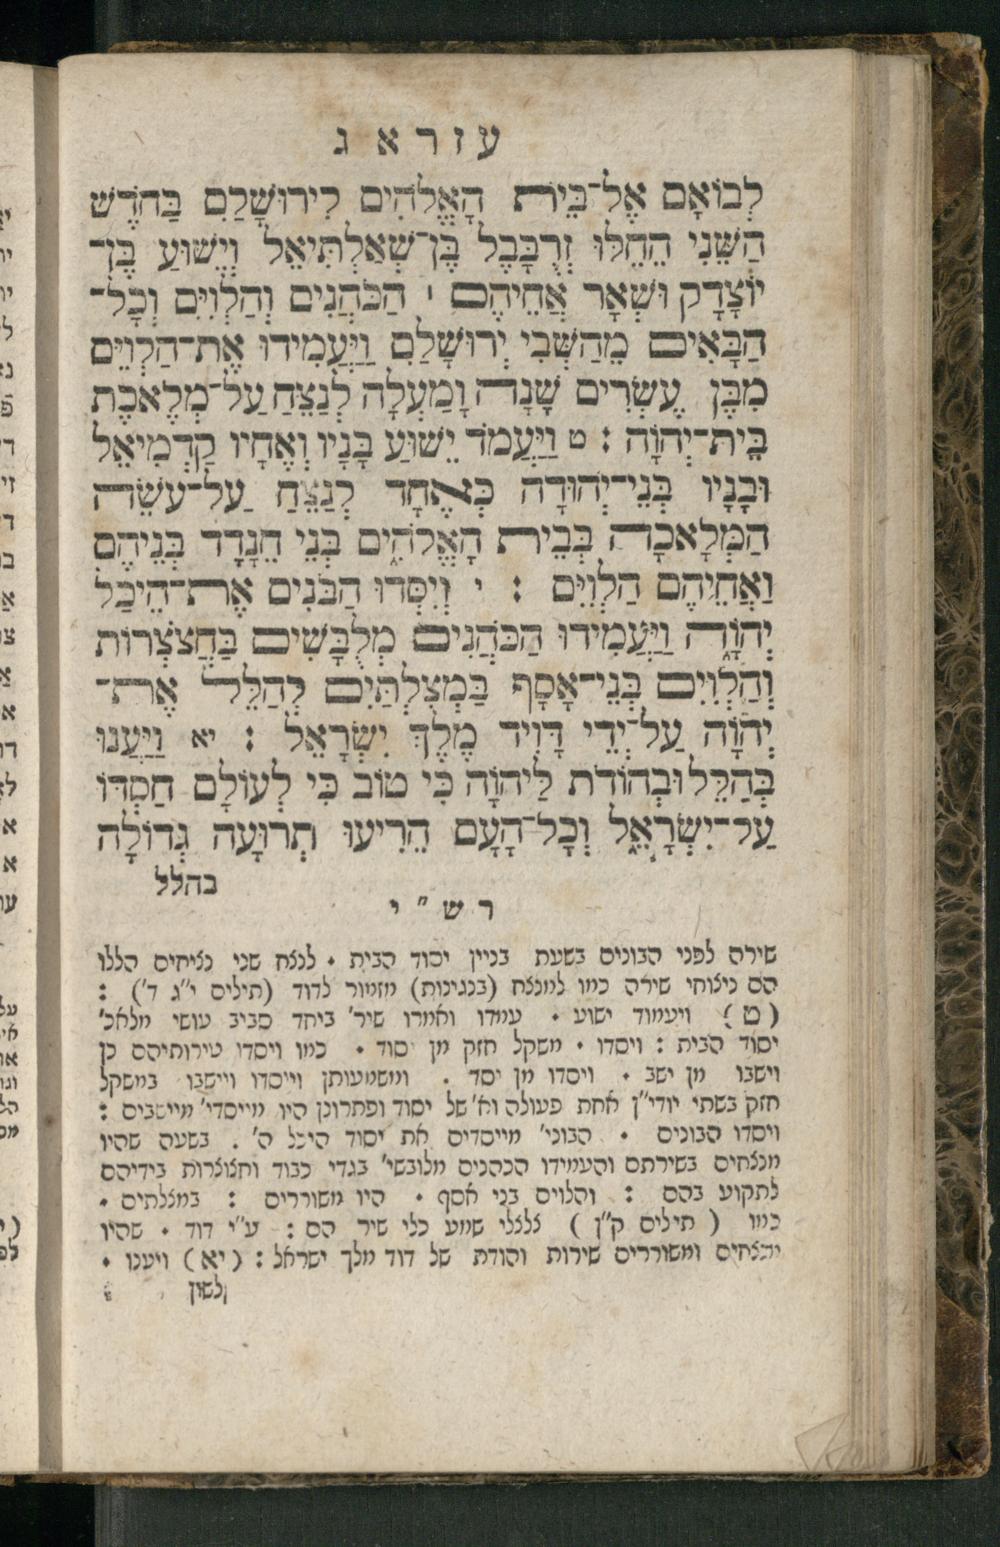 עזרא ג
לְבוֹאָם אֶל־בֵּית הָאֱלֹהִים לִירוּשָׁלַםִ בַּחֹדֶשׁ
הַשֵּׁנִי הֵחֵלּוּ זְרֻבָּבֶל בֶּן־שְׁאַלְתִּיאֵל וְיֵשׁוּעַ בֶּן־
יוֹצָדָק וּשְׁאָר אֲחֵיהֶם ׀ הַכֹּהֲנִים וְהַלְוִיִּם וְכָל־
הַבָּאִים מֵהַשְּׁבִי יְרוּשָׁלַםִ וַיַּעֲמִידוּ אֶת־הַלְוִיִּם
מִבֶּן עֶשְׂרִים שָׁנָה וָמַעְלָה לְנַצֵּחַ עַל־מְלֶאכֶת
בֵּית־יְהוָֹה : ט וַיַּעֲמֹד יֵשׁוּעַ בָּנָיו וְאֶחָיו קַדְמִיאֵל
וּבָנָיו בְּנֵי־יְהוּדָה כְּאֶחָד לְנַצֵּחַ עַל־עֹשֵׂה
הַמְּלָאכָה בְּבֵית הָאֱלֹהִים בְּנֵי חֵנָדָד בְּנֵיהֶם
וַאֲחֵיהֶם הַלְוִיִּם : י וְיִסְּדוּ הַבֹּנִים אֶת־הֵיכַל
יְהוָֹה וַיַּעֲמִידוּ הַכֹּהֲנִים מְלֻבָּשִׁים בַּחֲצֹצְרוֹת
וְהַלְוִיִּם בְּנֵי־אָסָף בַּמְצִלְתַּיִם לְהַלֵּל אֶת־
יְהוָֹה עַל־יְדֵי דָּוִיד מֶלֶךְ יִשְׂרָאֵל : יא וַיַּעֲנוּ
בְּהַלֵּל וּבְהוֹדֹת לַיהוָֹה כִּי טוֹב כִּי לְעוֹלָם חַסְדּוֹ
עַל־יִשְׂרָאֵל וְכָל־הָעָם הֵרִיעוּ תְרוּעָה גְדוֹלָה
בהלל
רש״י
שירה לפני הבונים בשעת בניין יסוד הבית • לנצח שני נציחים הללו
הם ניצוחי שירה כמו למנצח (בנגינות) מזמור לדוד (תילים י״ג ד׳) :
(ט) ויעמוד ישוע • עמדו ואמרו שיר׳ ביחד סביב עושי מלאכ׳
יסוד הבית : ויסדו • משקל חזק מן יסוד • כמו ויסדו טירותיהם כן
וישבו מן ישב • ויסדו מן יסד . ומשמעותן וייסדו ויישבו במשקל
חזק בשתי יודי״ן אחת פעולה וא׳ של יסוד ופתרונן היו מייסדי׳ מיישבים :
ויסדו הבונים • הבוני׳ מייסדים את יסוד היכל ה׳ . בשעה שהיו
מנצחים בשירתם והעמידו הכהנים מלובשי׳ בגדי כבוד וחצוצרות בידיהם
לתקוע בהם : והלוים בני אסף • היו משוררים : במצלתים •
כמו ( תילים ק״ן ) צלצלי שמע כלי שיר הם : ע״י דוד • שהיו
מנצחים ומשוררים שירות והודת של דוד מלך ישראל : (יא) ויענו •
לשון